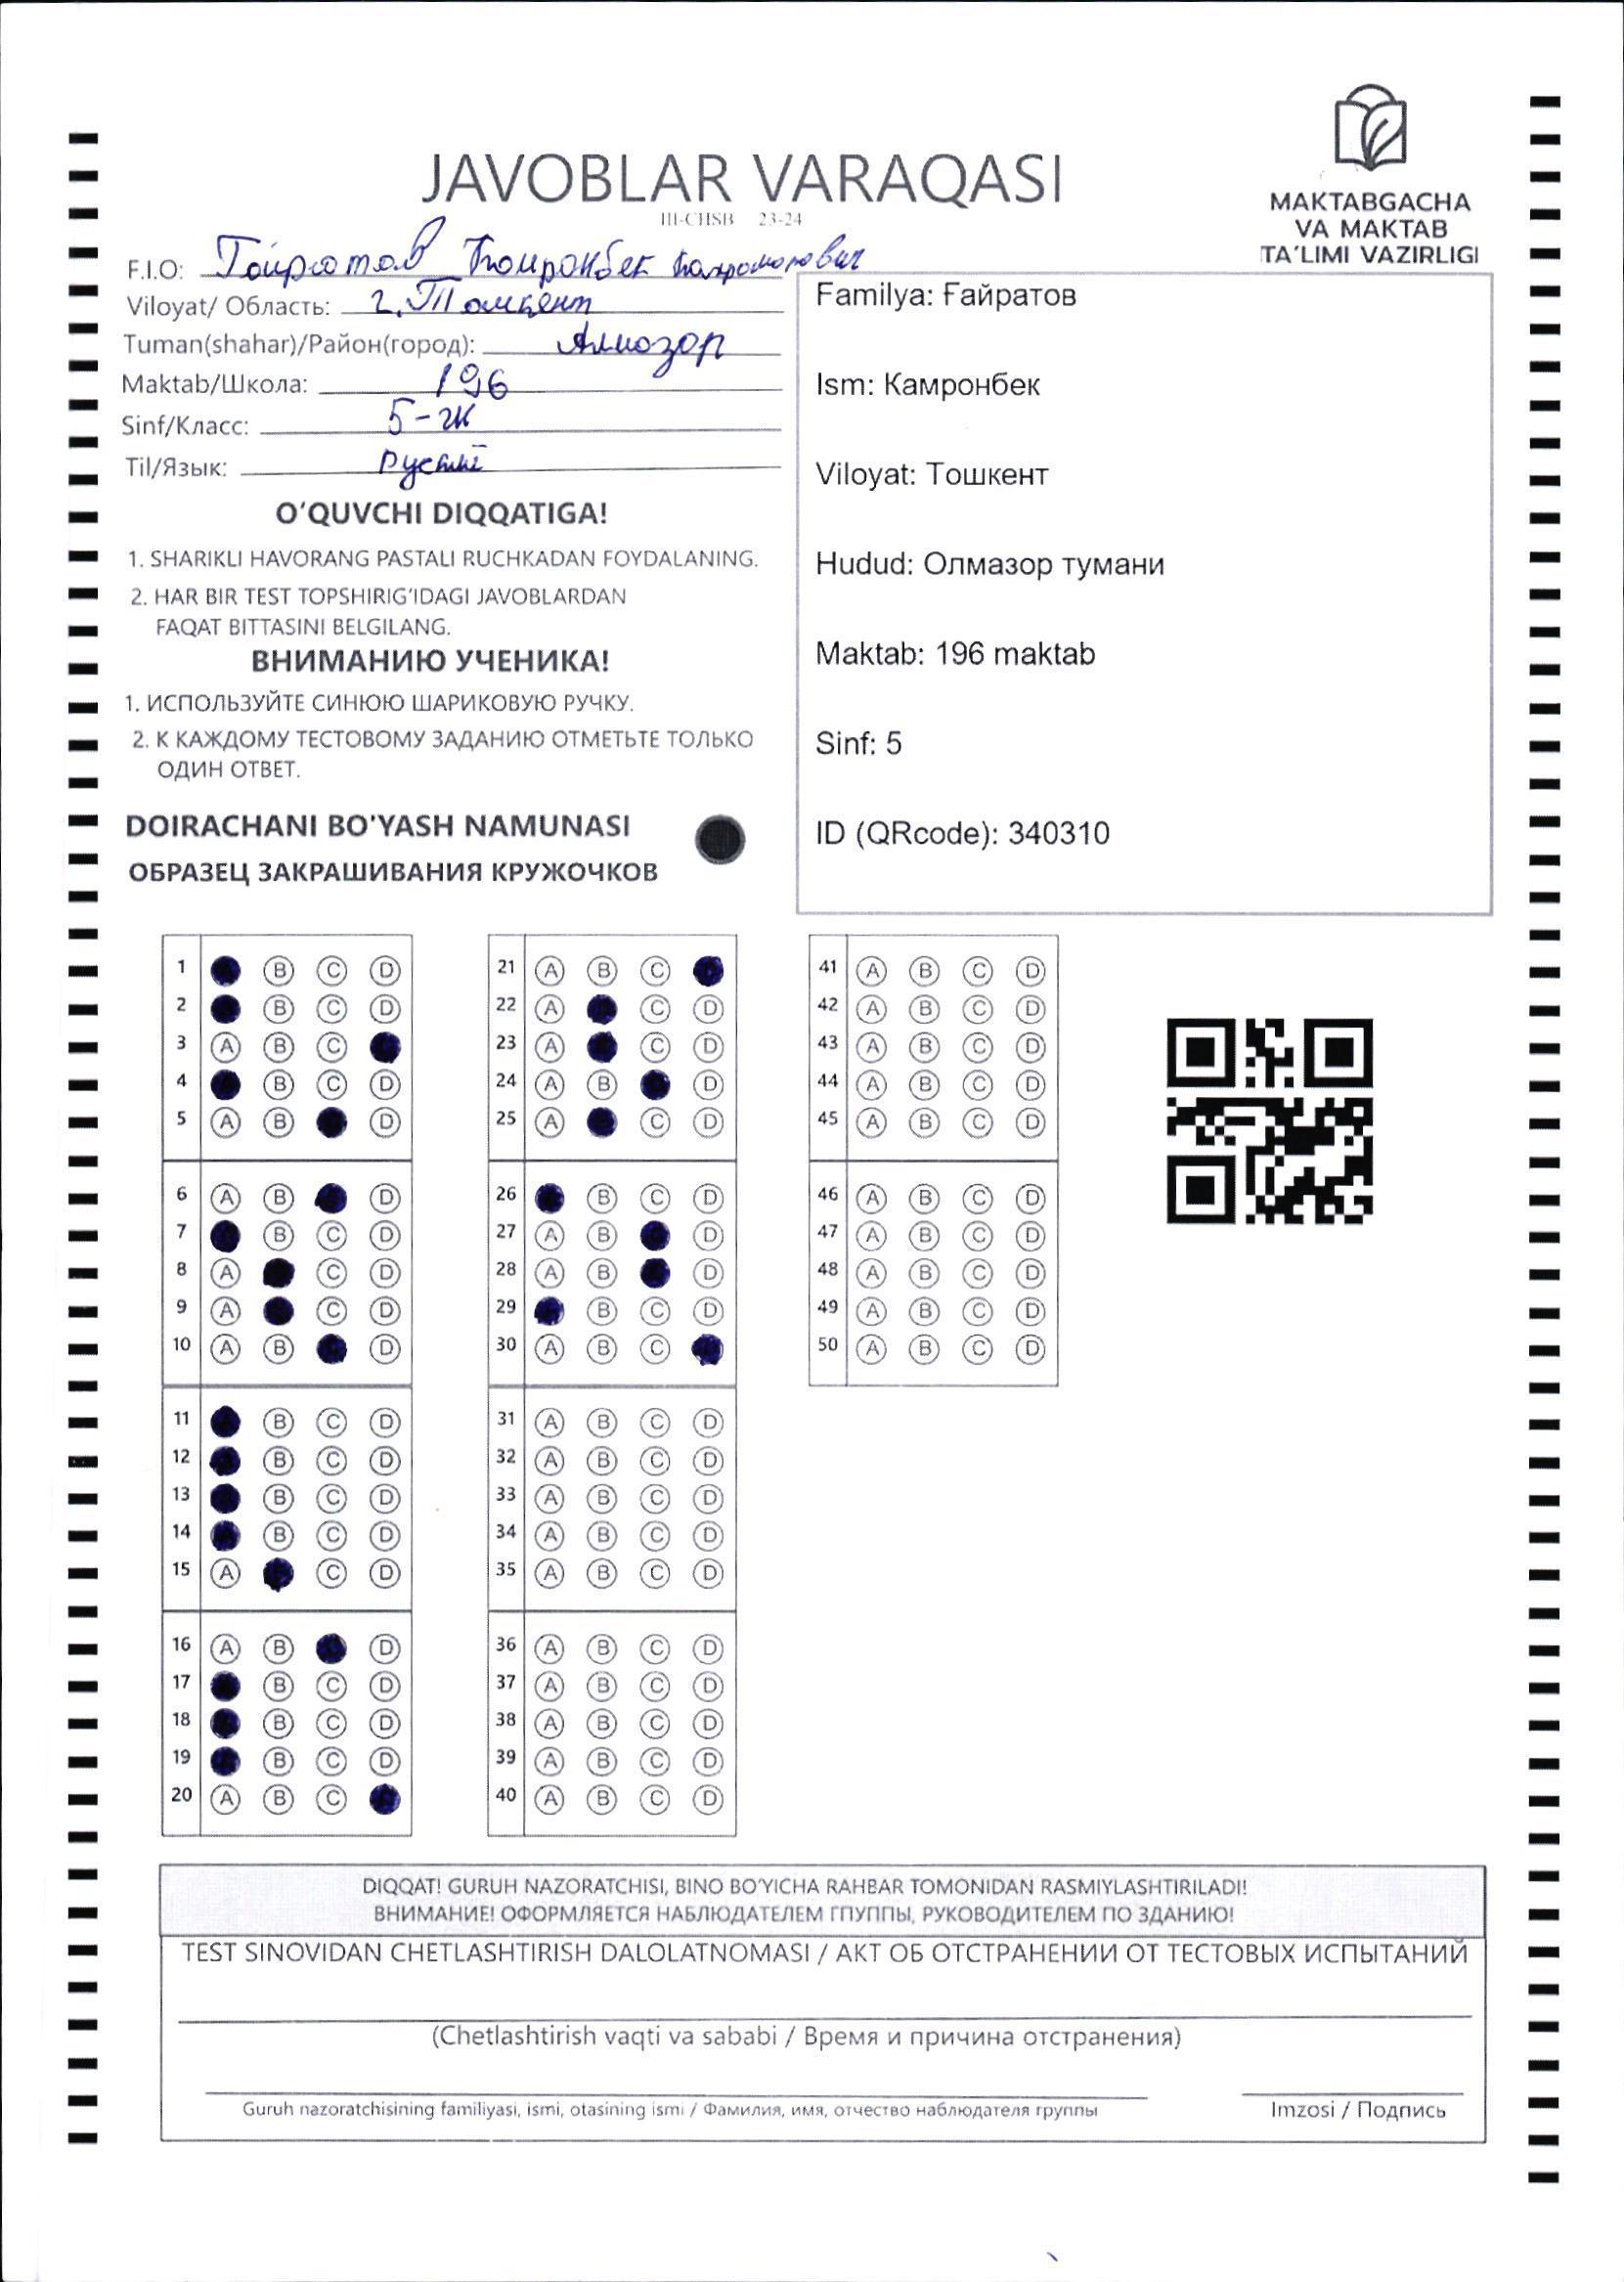 JAVOBLAR VARAQASI
III-CHSB 23-24
MAKTABGACHA
VA MAKTAB
TA'LIMI VAZIRLIGI
F.I.O: Гойратов Комронбек
Viloyat/ Область: г. Ташкент
Tuman(shahar)/Район(город): Алмозор
Maktab/Школа: 196
Sinf/Класс: 5-
Til/Язык:
O'QUVCHI DIQQATIGA!
1. SHARIKLI HAVORANG PASTALI RUCHKADAN FOYDALANING.
2. HAR BIR TEST TOPSHIRIG'IDAGI JAVOBLARDAN
FAQAT BITTASINI BELGILANG.
ВНИМАНИЮ УЧЕНИКА!
1. ИСПОЛЬЗУЙТЕ СИНЮЮ ШАРИКОВУЮ РУЧКУ.
2. К КАЖДОМУ ТЕСТОВОМУ ЗАДАНИЮ ОТМЕТЬТЕ ТОЛЬКО
ОДИН ОТВЕТ.
DOIRACHANI BO'YASH NAMUNASI
ОБРАЗЕЦ ЗАКРАШИВАНИЯ КРУЖОЧКОВ
Familya: Ғайратов
Ism: Камронбек
Viloyat: Тошкент
Hudud: Олмазор тумани
Maktab: 196 maktab
Sinf: 5
ID (QRcode): 340310
1 B C D
2 B C D
3 A B C
4 B C D
5 A B D
6 A B D
7 B C D
8 A C D
9 A C D
10 A B D
11 B C D
12 B C D
13 B C D
14 B C D
15 A C D
16 A B D
17 B C D
18 B C D
19 B C D
20 A B C
21 A B C
22 A C D
23 A C D
24 A B D
25 A C D
26 B C D
27 A B D
28 A B D
29 B C D
30 A B C
31 A B C D
32 A B C D
33 A B C D
34 A B C D
35 A B C D
36 A B C D
37 A B C D
38 A B C D
39 A B C D
40 A B C D
41 A B C D
42 A B C D
43 A B C D
44 A B C D
45 A B C D
46 A B C D
47 A B C D
48 A B C D
49 A B C D
50 A B C D
DIQQAT! GURUH NAZORATCHISI, BINO BO'YICHA RAHBAR TOMONIDAN RASMIYLASHTIRILADI!
ВНИМАНИЕ! ОФОРМЛЯЕТСЯ НАБЛЮДАТЕЛЕМ ГПУППЫ, РУКОВОДИТЕЛЕМ ПО ЗДАНИЮ!
TEST SINOVIDAN CHETLASHTIRISH DALOLATNOMASI / АКТ ОБ ОТСТРАНЕНИИ ОТ ТЕСТОВЫХ ИСПЫТАНИЙ
(Chetlashtirish vaqti va sababi / Время и причина отстранения)
Guruh nazoratchisining familiyasi, ismi, otasining ismi / Фамилия, имя, отчество наблюдателя группы
Imzosi / Подпись